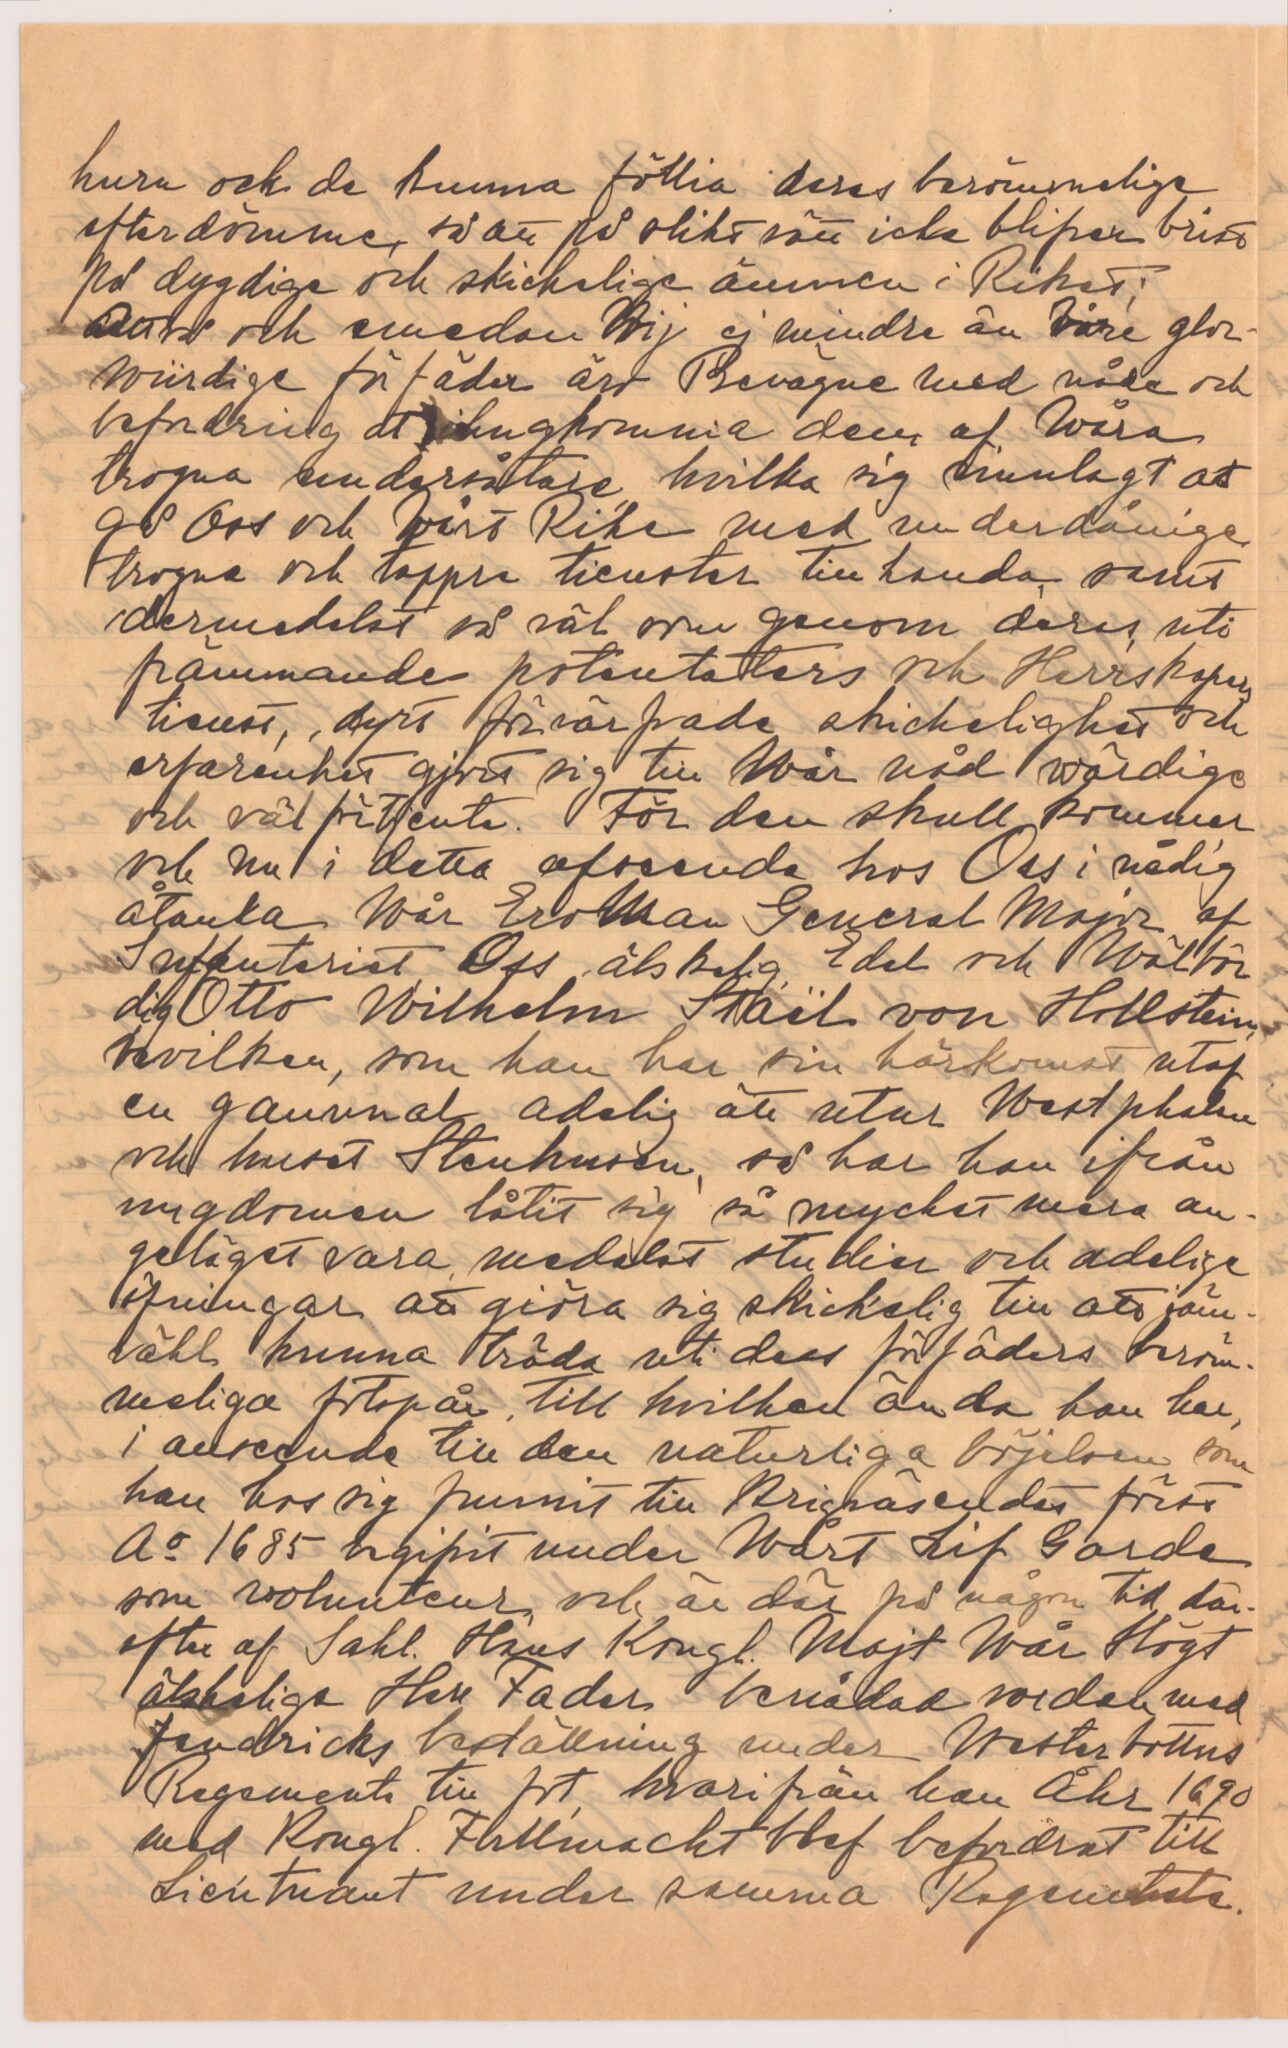 huru ock de kunna föllia deres berömmelige
efterdömme, så att på slikt sätt icke blifver brist
på dygdige och skickelige ämnen i Riket;
och emedan Wij ej mindre än Våre glor-
würdige förfäder äro Bevägne med nåde och
befordring at ihugkomma dem af Wåra
trogna undersåtare, hvilka sig vinnlagt at
gå Oss och Wårt Rike med underdånige
trogne och tappre tienster till handa, samt
dermedelst så väl som genom deres, uti
främmande potentaters och Herrskapers
tienst, dyrt förvärfvade skickelighet och
erfarenhet gjort sig till Wår nåd wördige
och väl förtjente. För den skull kommer
och nu i detta afseende hos Oss i nådig
åtanka Wår Tro Man General Major af
Infanteriet Oss älskelig Edel och Wälbör
dig Otto Wilhelm Staël von Hollstein,
hvilken, som han har sin härkomst utaf
en gammal adelig ätt utur Westphalen
och huset Stenhusen, så har han ifrån
ungdomen låtit sig så mycket mera an-
geläget vara, medelst studier och adelige
öfningar att giöra sig skickelig till att jäm-
vähl kunna träda uti dess förfäders beröm-
meliga fotspår, till hvilken ända han har,
i anseende till den naturliga böjelsen som
han hos sig funnit till Krigsväsendet först
Aº 1685 ingifvit under Wårt Lif Garde
som volunteur, och är där på någon tid där-
efter af Sahl. Hans Kongl. Majt Wår Högt
älskelige Herr Fader benådad vorden med
Fendricks beställning under Westerbottns
Regemente till fot, hvarifrån han Åhr 1690
med Kongl. Fullmacht blef befordrat till
Lieutnant under samma Regemente.